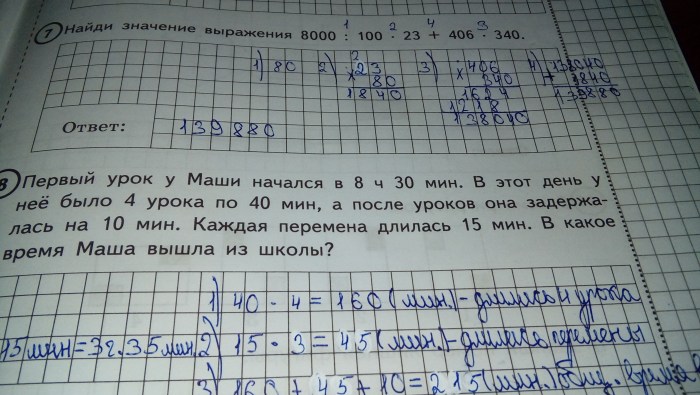 7 Найди значение выражения 8000 : 100 · 23 + 406 · 340.
1 2 4 3
1) 80 2) 3) 4)
2
×23 ×406 138040
80 340 + 1840
1840 1624 139880
1218
138040
Ответ: 139880
8 Первый урок у Маши начался в 8 ч 30 мин. В этот день у
неё было 4 урока по 40 мин, а после уроков она задержа-
лась на 10 мин. Каждая перемена длилась 15 мин. В какое
время Маша вышла из школы?
1) 40 · 4 = 160 (мин.) - длились 4 урока
15 мин = 3 ч. 35 мин. 2) 15 · 3 = 45 (мин.) - длились перемены
3) 160 + 45 + 10 = 215 (мин.) общ. время